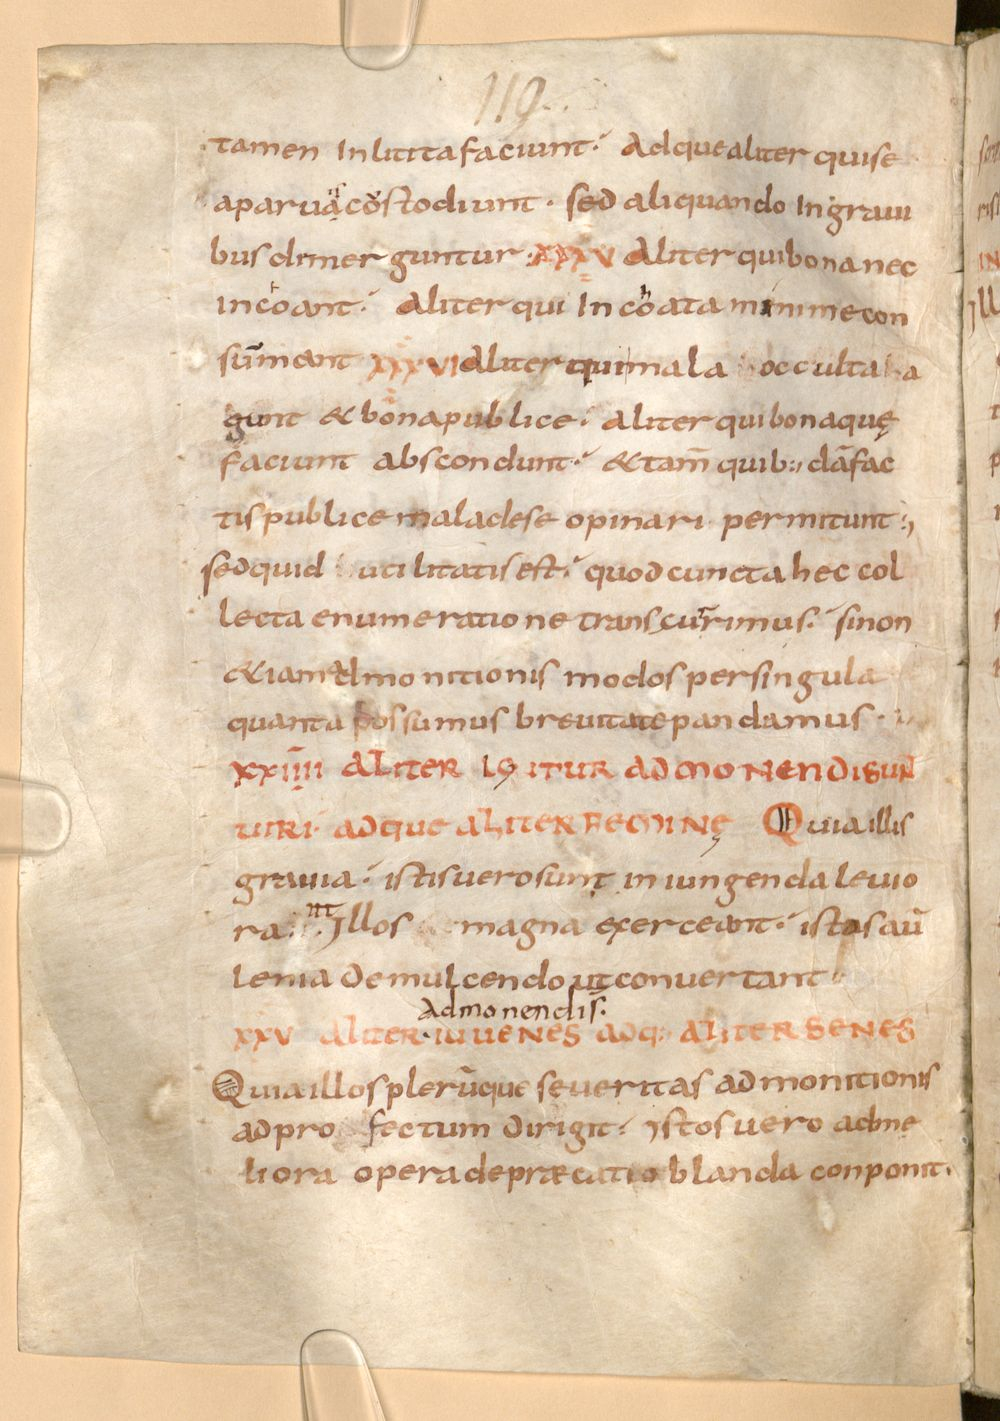 119.
tamen Inlicita faciunt. Adque aliter qui se
a paruis cōstodiunt. sed aliquando In graui
bus dimerguntur. XXXV Aliter qui bona nec
inchoant. Aliter qui Inchoata minime con
sūmant XXXVI Aliter qui mala occulta a
gunt & bona publice. aliter qui bona quę
faciunt abscondunt. & tam̄ quib: dāfac
tis publice mala de se opinari permitunt:,
sed quid utilitatis est. quod cuncta hec col
lecta enumeratione transcurrimus. si non
& iam Admonitionis modos per singula
quanta possumus breuitate pandamus.
XXIIII ALITER IGITUR ADMONENDI SUN
UIRI. ADQUE ALITER FEMINĘ Quia illis
grauia. istis uero sunt iniungenda leuio
ra. Illos magna exerceant. istas aū
lenia demulcendo ut conuertant.
Admonendis.
XXV ALITER. IUUENES ADQ: ALITER SENES
Quia illos plerūque seueritas admonitionis
ad profectum dirigit. istos uero ad me
liora opera deprӕcatio blanda conponit.